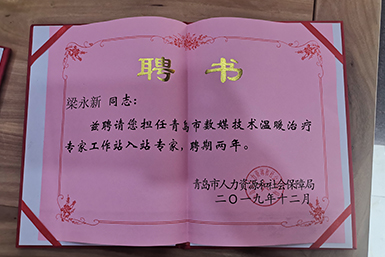 聘书
梁永新 同志：
兹聘请您担任青岛市数媒技术温暖治疗
专家工作站入站专家，聘期两年。
青岛市人力资源和社会保障局
二〇一九年十二月